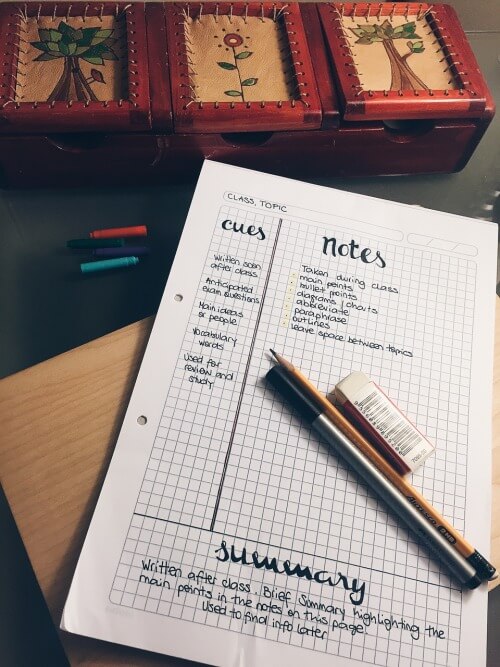 CLASS, TOPIC
cues
Written soon
after class
Anticipated
exam questions
Main ideas
or people
Vocabulary
words
Used for
review and
study
notes
Taken during class
main points
bullet points
diagrams / charts
abbreviate
paraphrase
outlines
leave space between topics
summary
Written after class. Brief Summary highlighting the
main points in the notes on this page
Used to find info later